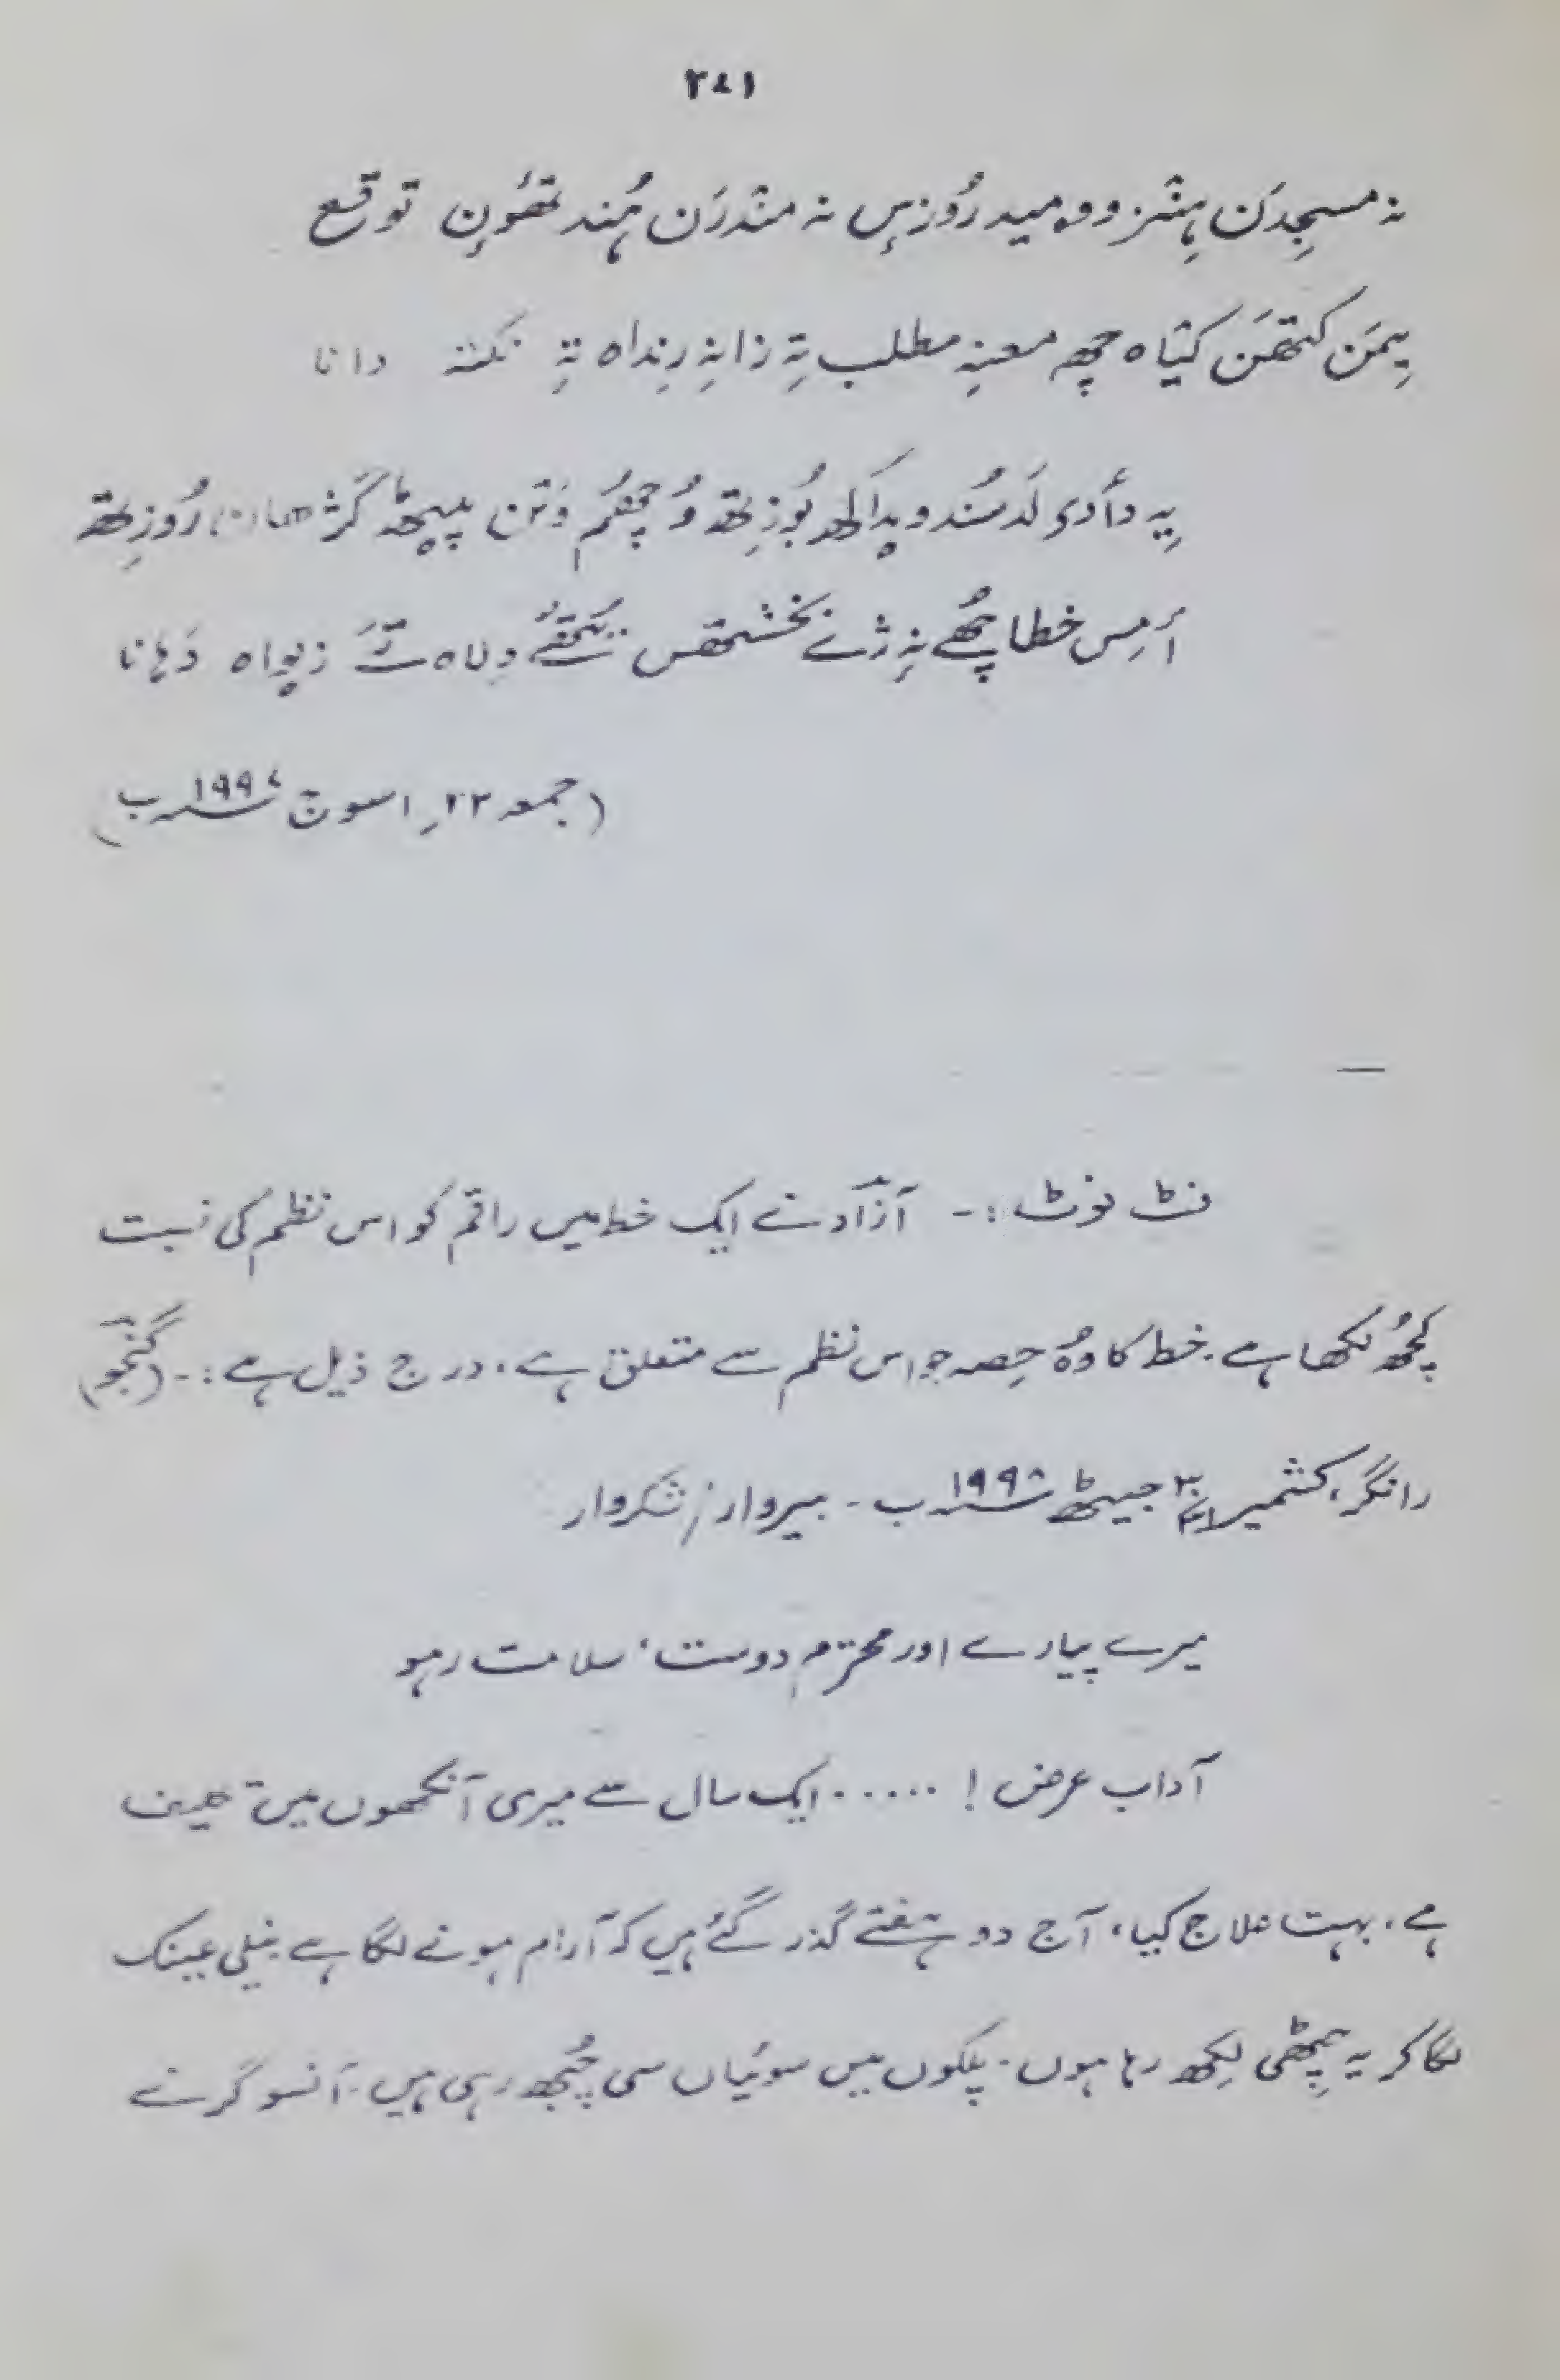 نہ مسجدَن ہِنٛز وومید رُوزِس نہ مندرَن ہُند تھوٚون توقع
یِمَن کتھَن کیٛاہ چھِ معنہِ مطلب تہِ زانہِ رِنداہ تہِ نکتہ دانا
یِہ دأدی لَد سُند ویداکھ بُوزِتھ وُچھُم وَتن پیٹھ گژھان رُوزِتھ
أمِس خطا چھُے نہِ ژٕے بخشتھس زیواہ دَہانا
(جمعہ ۲۲؍ اسوج ۱۹۹۷ ب)
فٹ نوٹ :- آزاد نے ایک خط میں راقم کو اس نظم کی نسبت
کچھُ لکھا ہے۔ خط کا وہُ حِصہ جو اس نظم سے متعلق ہے، درج ذیل ہے :- (گنجو)
رانگر، کشمیر جیٹھ ۱۹۹۸ ب۔ بیروار / شکروار
میرے پیارے اور محترم دوست، سلامت رہو
آداب عرض ! ..... ایک سال سے میری آنکھوں میں تکلیف
ہے، بہت علاج کیا، آج دو ہفتے گذر گئے ہیں کہ آرام ہونے لگا ہے نیلی عینک
لگا کر یہ چِٹھی لِکھ رہا ہوں۔ پلکوں میں سوئیاں سی چُبھ رہی ہیں۔ آنسو گرنے